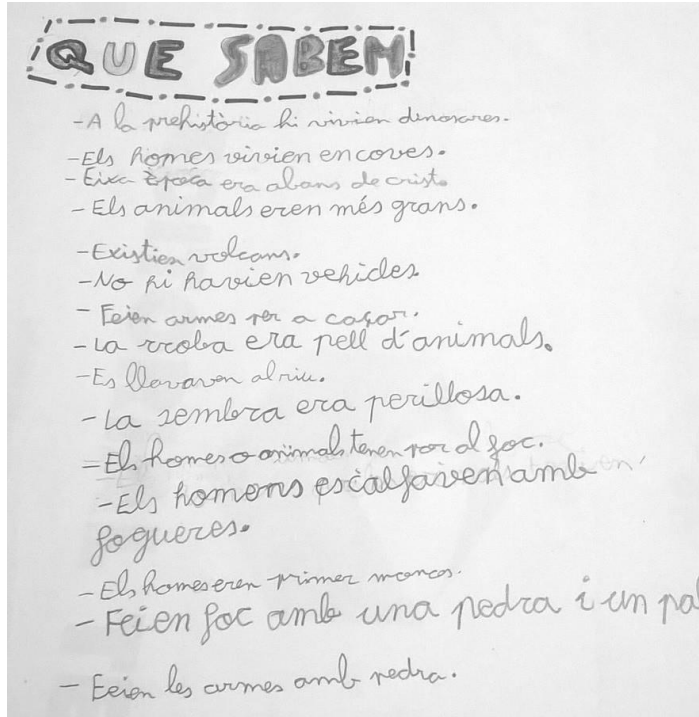 QUE SABEM
-A la prehistòria hi vivien dinosares.
-Els homes vivien en coves.
-Eixa Època era abans de crist.
-Els animals eren més grans.
-Existien volcans.
-No hi havien vehicles.
-Feien armes per a caçar.
-La rroba era pell d'animals.
-Es llavaven al riu.
-La sembra era perillosa.
-Els homes o animals tenen por al foc.
-Els homens escalfaven amb
fogueres.
-Els homes eren primer monos.
-Feien foc amb una pedra i un pal
-Feien les armes amb pedra.